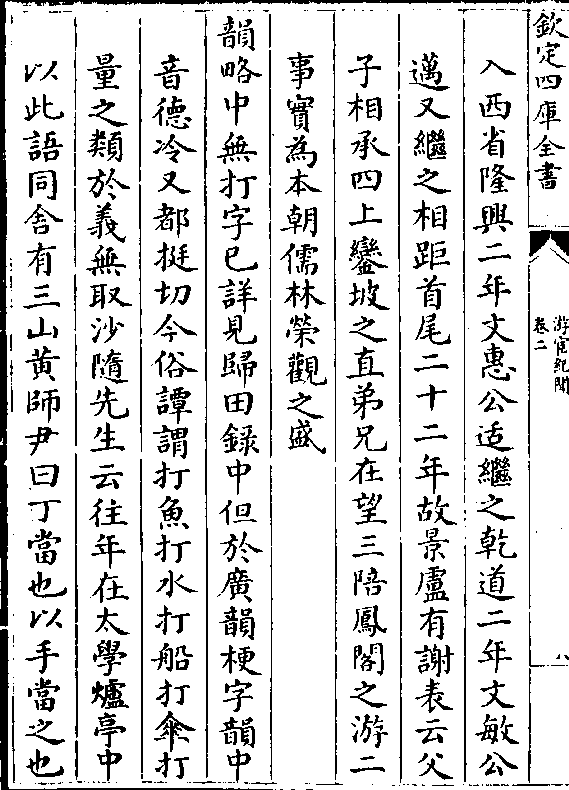 欽定四庫全書
游宦紀聞
卷二
八
入西省隆興二年文惠公适繼之乾道二年文敏公
邁又繼之相距首尾二十二年故景盧有謝表云父
子相承四上鑾坡之直弟兄在望三陪鳳閣之游二
事實為本朝儒林榮觀之盛
韻略中無打字已詳見歸田錄中但於廣韻梗字韻中
音德冷又都挺切今俗譚謂打魚打水打船打傘打
量之類於義無取沙隨先生云往年在太學爐亭中
以此語同舍有三山黃師尹曰丁當也以手當之也